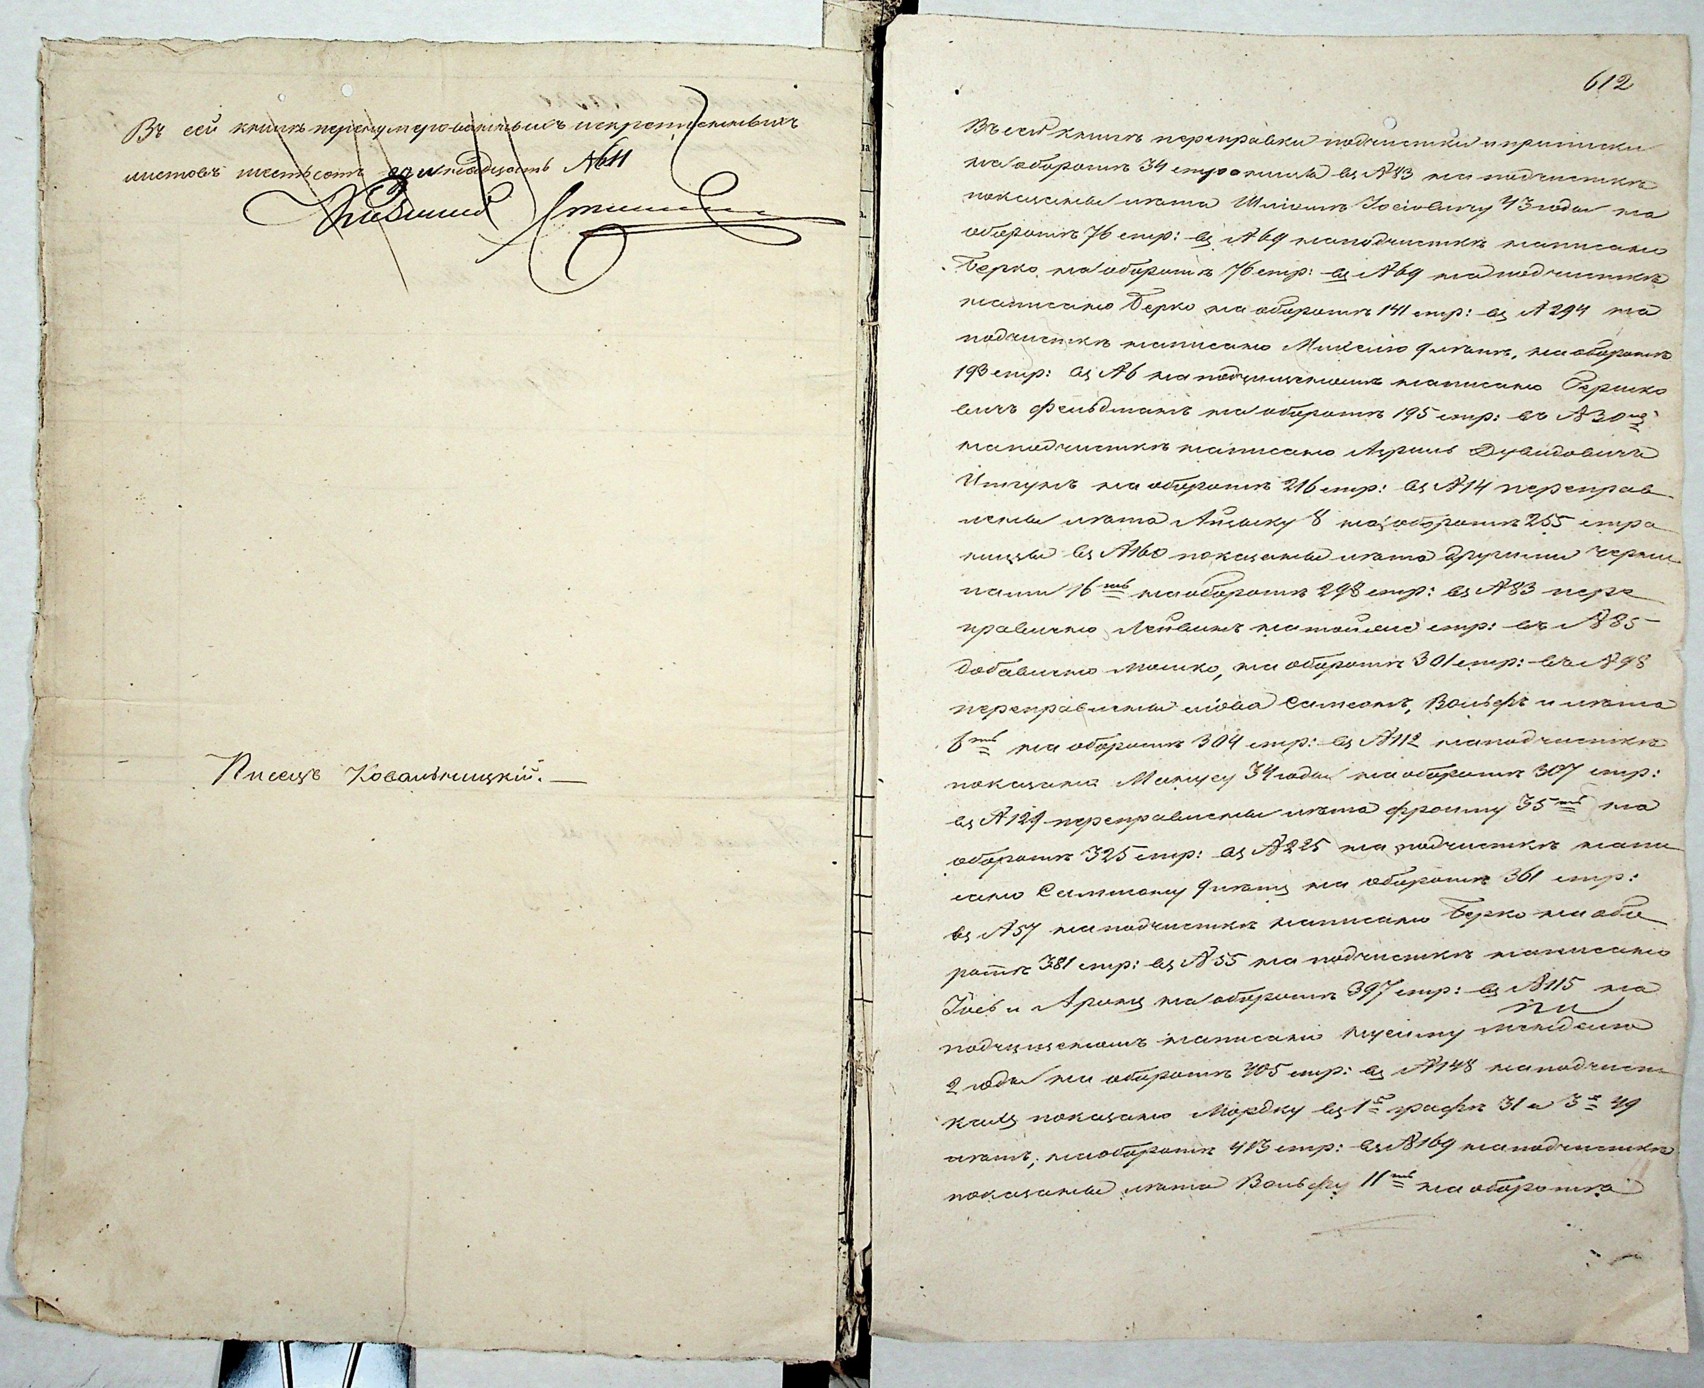 Въ сей книгѣ перенумерованныхъ и скрепленныхъ
листовъ шестьсотъ одинадцать №611
Писецъ Ковальницкій.—
612
Въ сей книгѣ переправки подчистки и приписки
на оборотѣ 34 страницы въ №83 на подчисткѣ
показаны лѣта Шліомѣ Іосіовичу 43 года на
оборотѣ 76 стр: въ №69 на подчисткѣ написано
Берко на оборотѣ 76 стр: въ №69 на подчисткѣ
написано Берко на оборотѣ 141 стр: въ №294 на
подчисткѣ написано 9 лѣтъ, на оборотѣ
193 стр: въ №6 на подчищеномъ написано Гершко
вичъ Фельдманъ на оборотѣ 195 стр: въ №30
на подчисткѣ написано Азриль Дувидовичъ
на оборотѣ 216 стр: въ №14 переправ
лены лѣта Айзыку 8 на оборотѣ 255 стра
ницы въ №160 показаны лѣта другими черни
лами 16ть на оборотѣ 298 стр: въ №83 пере
правлено Лейвикъ на той же стр: въ №85
добавлено Мошко, на оборотѣ 301 стр: въ №98
переправлены слова Симсонъ, Вольфъ и лѣта
6ть на оборотѣ 304 стр: въ №112 на подчисткѣ
показано 34 года на оборотѣ 307 стр:
въ №129 переправлены лѣта Фроиму 35ть на
оборотѣ 325 стр: въ №225 на подчисткѣ напи
сано 9 лѣтъ на оборотѣ 361 стр:
въ №57 на подчисткѣ написано Берко на обо
ротѣ 381 стр: въ №55 на подчисткѣ написано
Іось и Аронъ на оборотѣ 397 стр: въ №115 на
подчищеномъ написано Менделю
2 года на оборотѣ 405 стр: въ №148 на подчист
кахъ показано Мордку въ 1й графѣ 31 и 3й 49
лѣтъ, на оборотѣ 413 стр: въ №169 на подчисткѣ
показаны лѣта Вольфу 11ть на оборотѣ